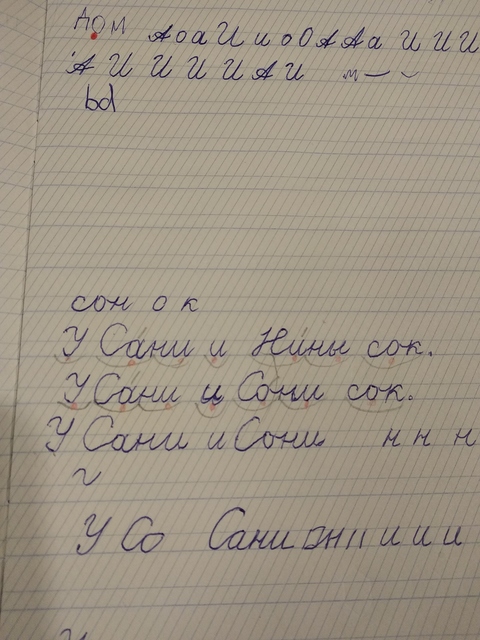 дом АоаИиоОААаИИИ
АИИИИАИ м
bd
сон о к
У Сани и Нины сок.
У Сани и Сони сок.
У Сани и Сони н н н
У Со Сани и и и